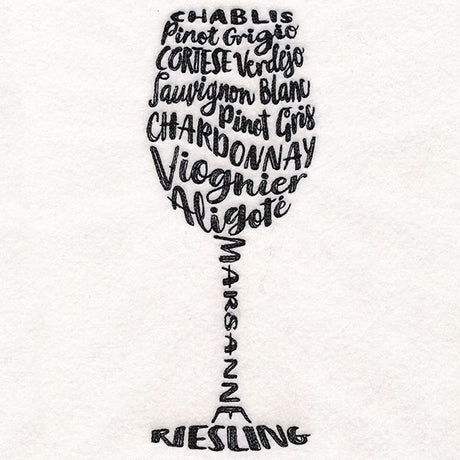 CHABLIS
Pinot Grigio
CORTESE Verdejo
Sauvignon Blanc
Pinot Gris
CHARDONNAY
Viognier
Aligoté
MARSANNE
RIESLING